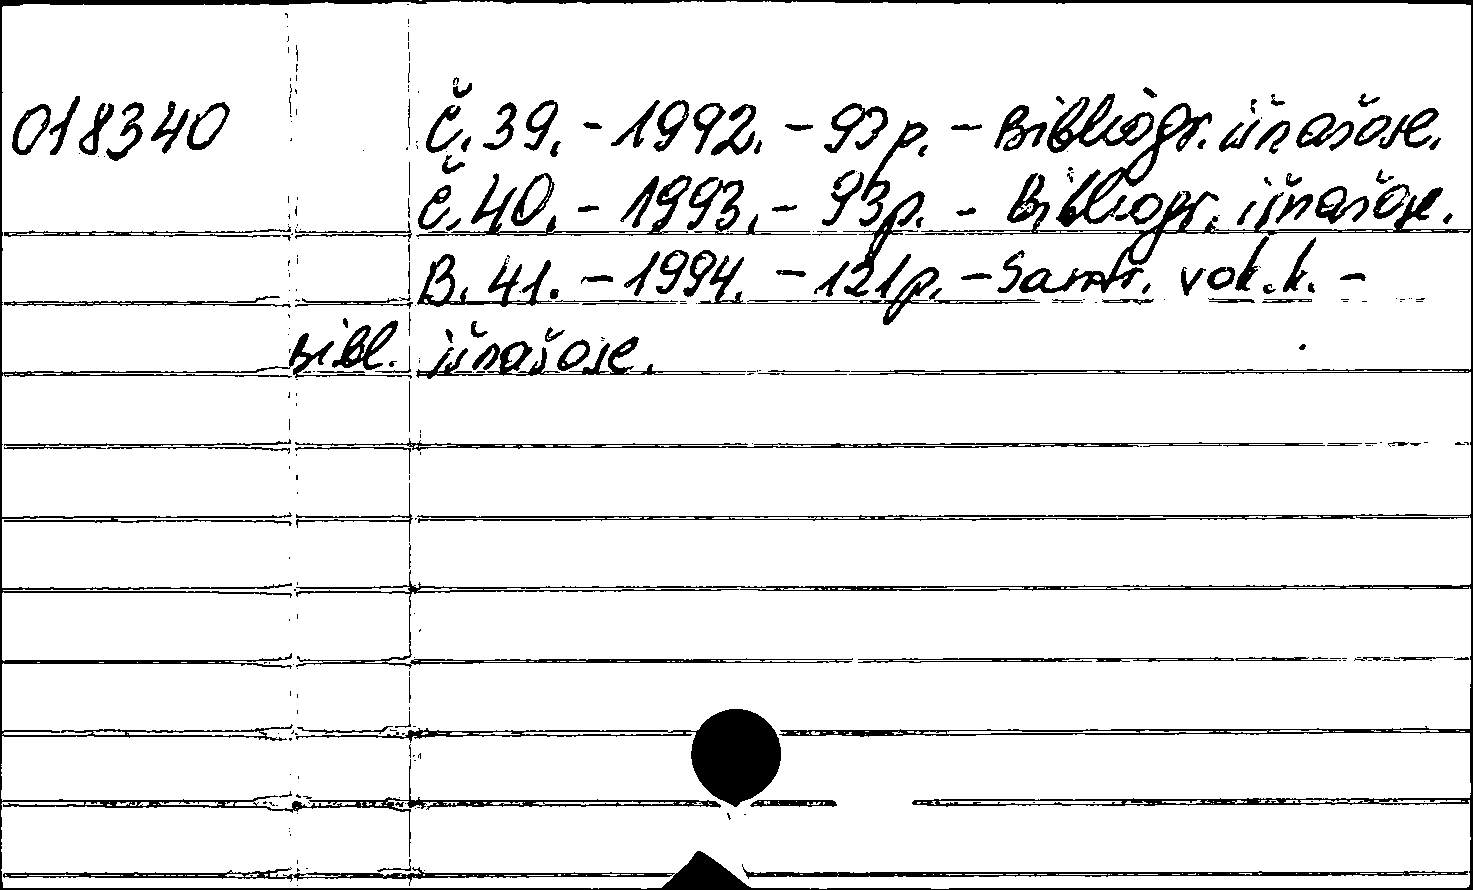 018340 Č. 39. - 1992. - 93 p. - Bibliogr. išnašose.
Č. 40. - 1993. - 93 p. - Bibliogr. išnašose.
B. 41. - 1994. - 121 p. - Santr. vok. k. -
bibl. išnašose.